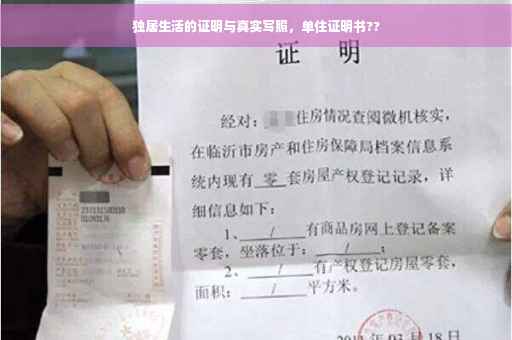 独居生活的证明与真实写照，单住证明书??
证 明
经对：住房情况查阅微机核实，
在临沂市房产和住房保障局档案信息系
统内现有 零 套房屋产权登记记录，详
细信息如下：
1、 / 有商品房网上登记备案
零套，坐落位于： / ；
2、 / 有产权登记房屋零套，
面积： / 平方米。
03月18日